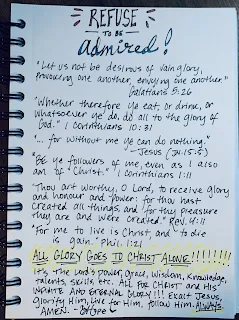 REFUSE
TO BE
Admired!
"Let us not be desirous of vain glory,
provoking one another, envying one another."
Galatians 5:26
"Whether therefore ye eat, or drink, or
whatsoever ye do, do all to the glory of
God." 1 Corinthians 10:31
"... for without me ye can do nothing."
- Jesus (Jn. 15:5)
"BE ye followers of me, even as I also
am of Christ." 1 Corinthians 11:1
"Thou art worthy, O Lord, to receive glory
and honour and power: for thou hast
created all things, and for thy pleasure
they are and were created." Rev. 4:11
"For me to live is Christ, and to die
is gain." Phil. 1:21
ALL GLORY GOES TO CHRIST ALONE!!!!!!!
It's the Lord's power, grace, wisdom, knowledge,
talents, skills etc. ALL FOR CHRIST and His
INFINITE AND ETERNAL GLORY!!! Exalt Jesus,
glorify Him, live for Him, follow Him. ALWAYS.
AMEN.